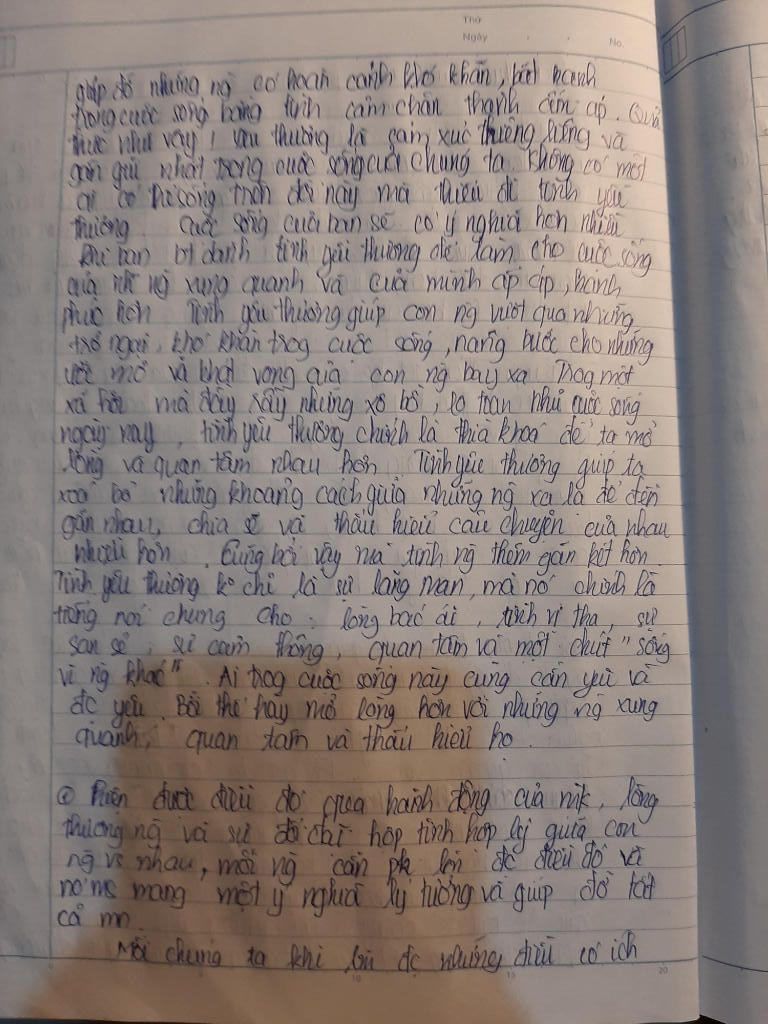 Thứ
Ngày No.
giúp đỡ những ng có hoàn cảnh khó khăn, bất hạnh
trong cuộc sống bằng tình cảm chân thành ấm áp. Quả
thực như vậy, yêu thương là cảm xúc thiêng liêng và
gần gũi nhất trong cuộc sống của chúng ta. Không có một
ai có thể sống trên đời này mà thiếu đi tình yêu
thương. Cuộc sống của bạn sẽ có ý nghĩa hơn nhiều
khi bạn bt dành tình yêu thương để làm cho cuộc sống
của những ng xung quanh và của mình ấm áp, hạnh
phúc hơn. Tình yêu thương giúp con ng vượt qua những
trở ngại, khó khăn trog cuộc sống, nâng bước cho những
ước mơ và khát vọng của con ng bay xa. Trog một
xã hội mà đầy rẫy những xô bồ, lo toan như cuộc sống
ngày nay, tình yêu thương chính là thìa khoá để ta mở
lòng và quan tâm nhau hơn. Tình yêu thương giúp ta
xoá bỏ những khoảng cách giữa những ng xa lạ để đến
gần nhau, chia sẻ và thấu hiểu câu chuyện của nhau
nhiều hơn. Cũng bởi vậy mà tình ng thêm gắn kết hơn.
Tình yêu thương ko chỉ là sự lãng mạn, mà nó chính là
tiếng nói chung cho: lòng bác ái, tính vị tha, sự
san sẻ, sự cảm thông, quan tâm và một chút "sống
vì ng khác". Ai trog cuộc sống này cũng cần yêu và
đc yêu. Bởi thế hãy mở lòng hơn với những ng xung
quanh, quan tâm và thấu hiểu họ.
được điều đó qua hành động của mk, lòng
thương ng và sự hợp tình hợp lý giữa con
ng vs nhau, mỗi ng cần điều đó và
nó ms mang một ý nghĩa lý tưởng và giúp đỡ tất
cả mn.
Mỗi chúng ta khi đc những điều có ích
10 15 20